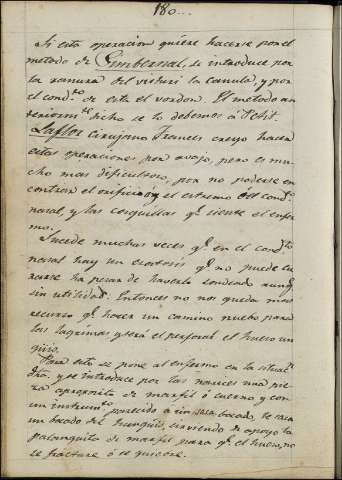 180...
Si esta operacion quiere hacerse por el
metodo de Gimbernat, se introduce por
la ranura del visturi la canula, y por
el cond.to de esta el vordon. El metodo an
teriorm.te dicho se lo debemos á Petit.
Laflor Cirujano Frances creyo hacer
estas operaciones por avajo, pero es mu
cho mas dificultoso, por no poderse en
contrar el orificio y el estremo del cond.to
nasal, y las cosquillas q.e siente el enfer
mo.
Sucede muchas veces q.e en el cond.to
nasal hay un q.e no puede cu
rarse ha pesar de haverlo sondeado aunq.e
sin utilidad. Entonces no nos queda mas
recurso q.e hacer un camino nuebo para
las lagrimas y será el perforar el hueso un
guis.
Para esto se pone al enfermo en la situac.n
dha. y se introduce por las narices una pie
za aproposito de marfil ó cuerno y con
un instrum.to parecido á un saca bocado, se saca
un bocado del hunguis, sirviendo de apoyo la
palanquita de marfil para q.e el hueso, no
se fracture ó se quiebre.